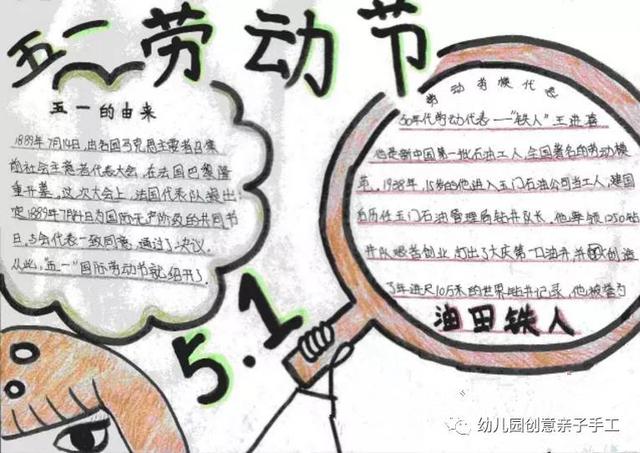 五一劳动节
五一的由来
1889年7月14日,由各国马克思主义者召集
的社会主义者代表大会,在法国巴黎隆
重开幕。这次大会上,法国代表队提出
定1889年7月14日为国际无产阶级的共同节
日,与会代表一致同意,通过了决议。
从此,"五一"国际劳动节就
5.1
劳动者模代
50年代劳动代表——"铁人"王进喜
他是新中国第一批石油工人,全国著名的劳动模
范。1938年,15岁的他进入玉门石油公司当工人,建国
后历任玉门石油管理局钻井队长。他率领1250钻
井队艰苦创业,打出了大庆第一口油井,并创造
了年进尺10万米的世界钻井记录,他被誉为
油田铁人
幼儿园创意亲子手工